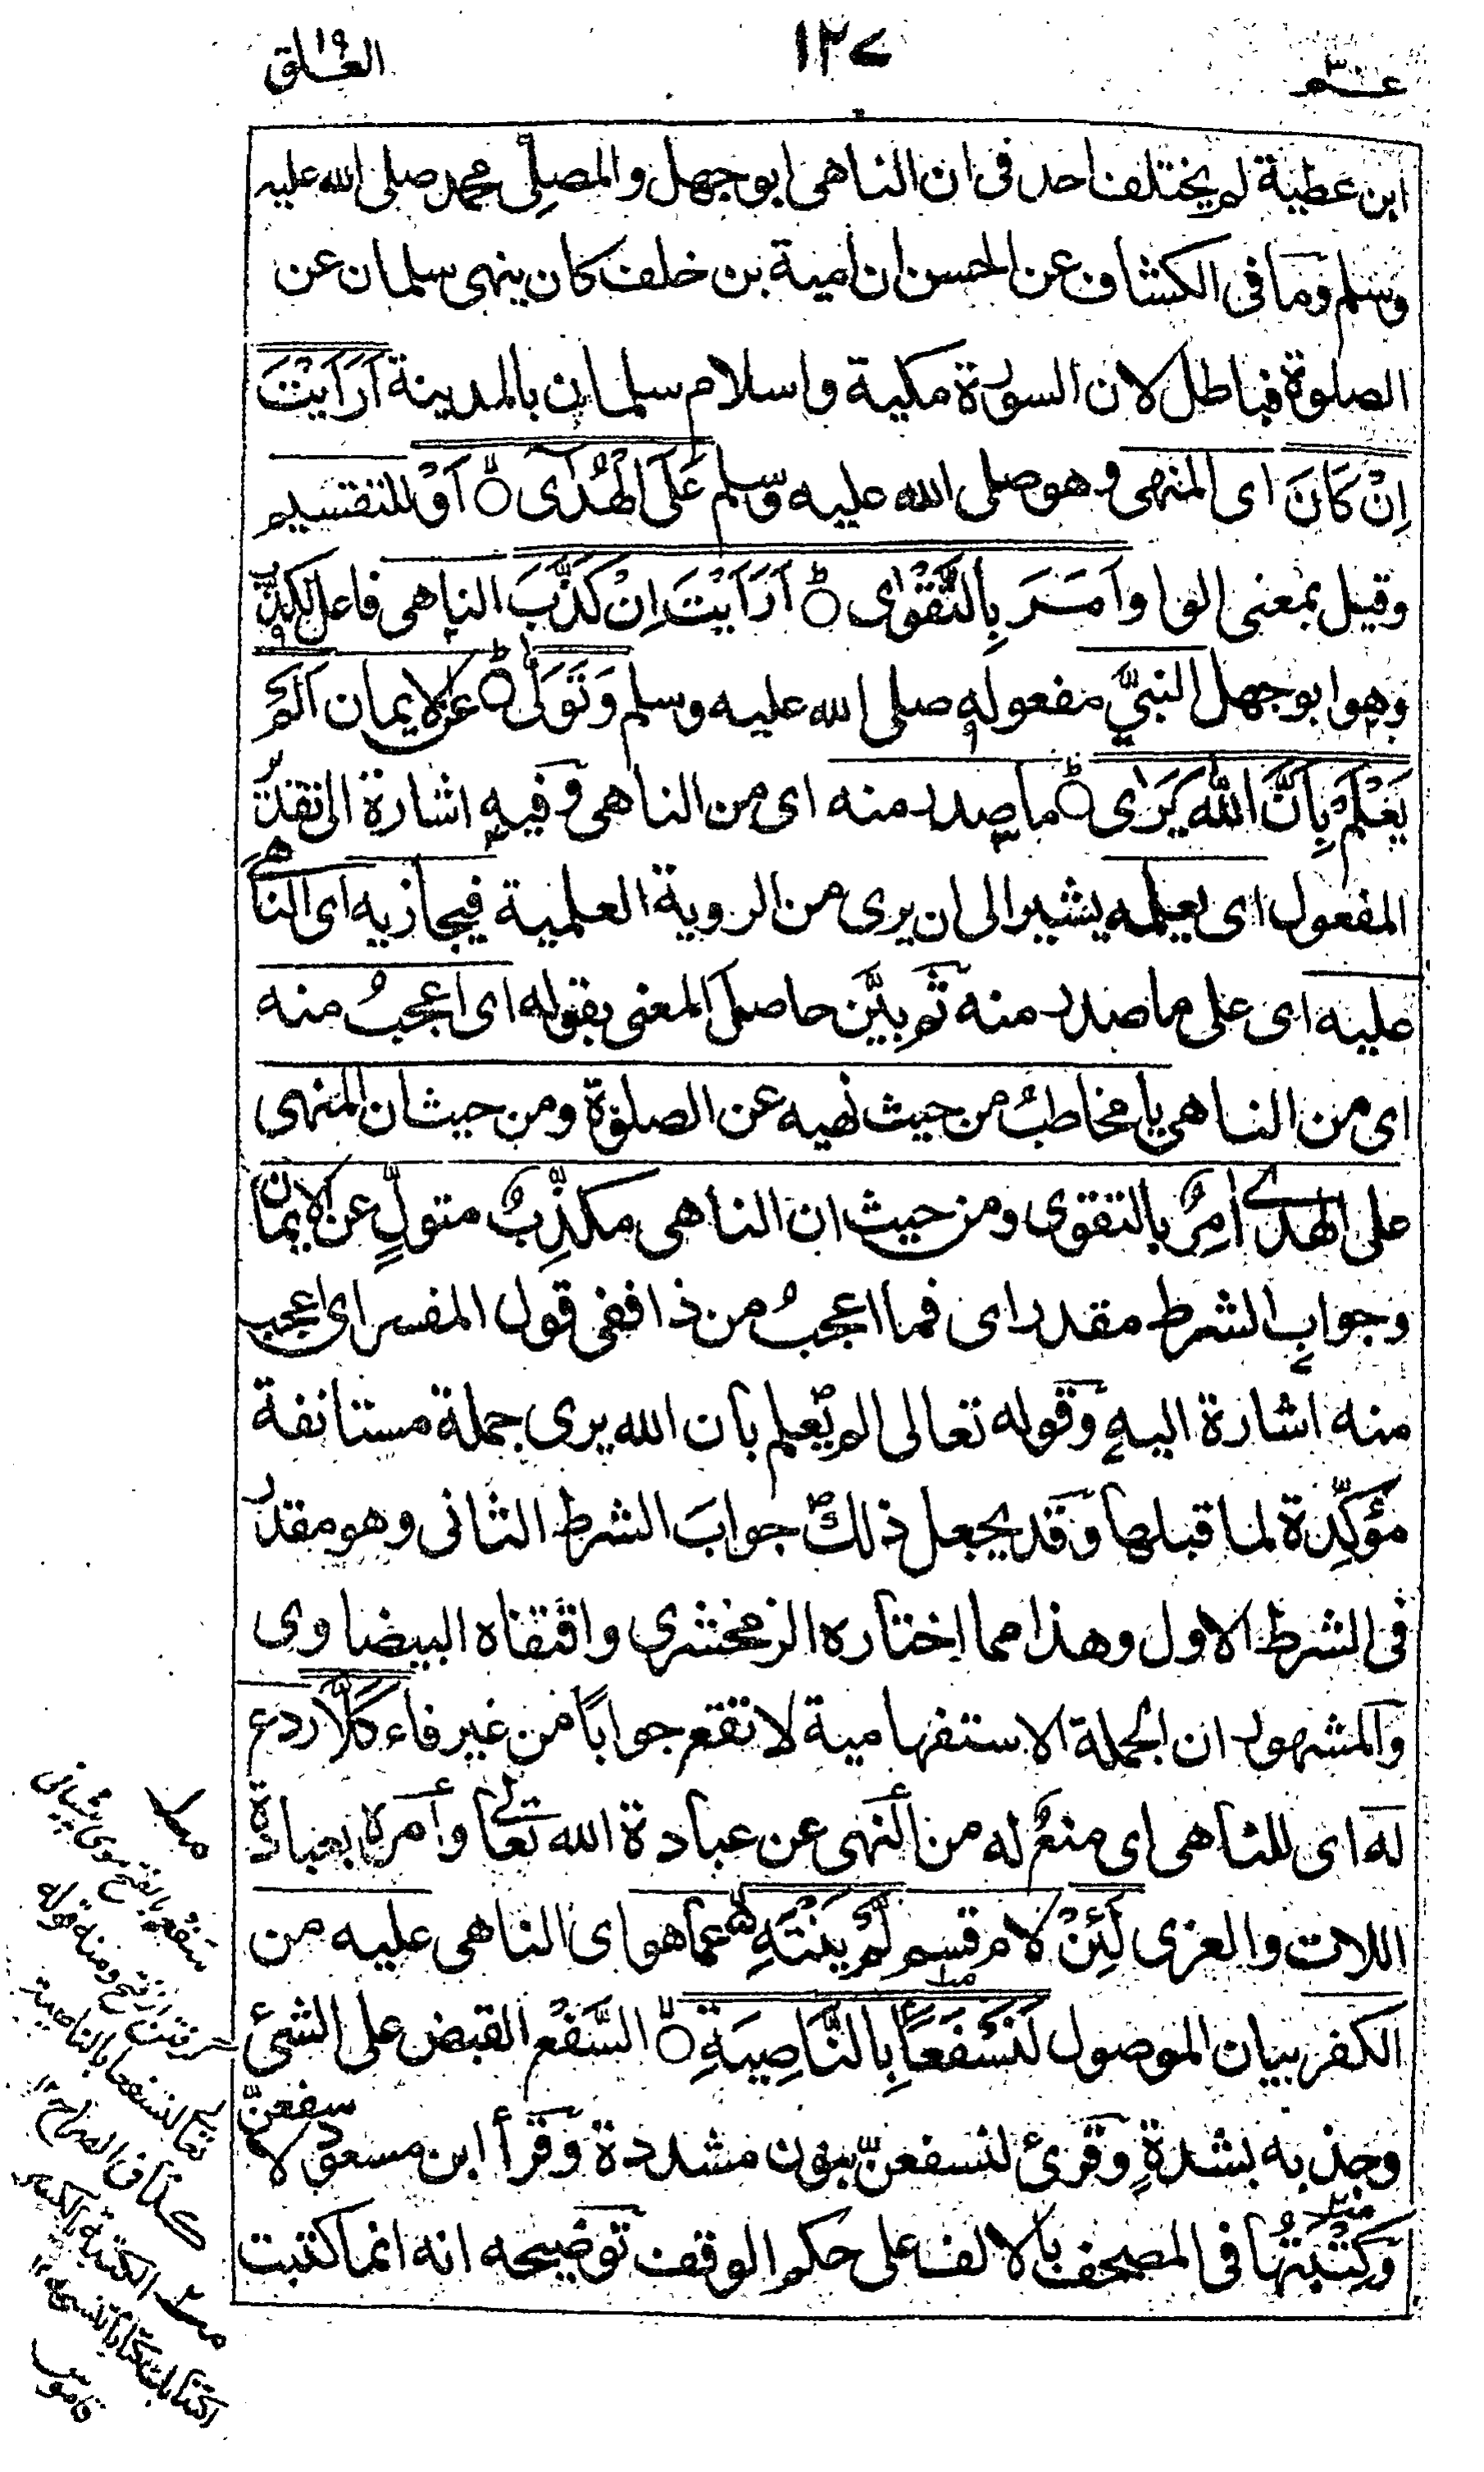 عم ٣٠
١٢٧
العلق ١٩
ابن عطية لم يختلف احد فى ان الناهى ابو جهل والمصلِّى محمد صلى الله عليه
وسلم وما فى الكشاف عن الحسن ان امية بن خلف كان ينهى سلمان عن
الصلوة فباطل لان السورة مكية واسلام سلمان بالمدينة اَرَاَيْتَ
اِنْ كَانَ اى المنهى وهو صلى الله عليه وسلم عَلَى الْهُدٰٓى اَوْ للتقسيم
وقيل بمعنى الواو اَمَرَ بِالتَّقْوٰى اَرَاَيْتَ اِنْ كَذَّبَ الناهى فاعل لكذَّب
وهو ابو جهل النبيَّ مفعوله صلى الله عليه وسلم وَتَوَلّٰى عن الايمان اَلَمْ
يَعْلَمْ بِاَنَّ اللّٰهَ يَرٰى ما صدر منه اى من الناهى وفيه اشارة الى تقدير
المفعول اى يعلمه يشير الى ان يرى من الروية العلمية فيجازيه اى الناهى
عليه اى على ما صدر منه ثم بيَّن حاصل المعنى بقوله اى اعجبُ منه
اى من الناهى يا مخاطبُ من حيث نهيه عن الصلوة ومن حيث ان المنهى
على الهدى اٰمِرٌ بالتقوى ومن حيث ان الناهى مكذِّبٌ متولٍّ عن الايمان
وجواب الشرط مقدر اى فما اعجبُ من ذا ففى قول المفسر اى اعجب
منه اشارة اليه وقوله تعالى الم يعلم بان الله يرى جملة مستانفة
مؤكِّدة لما قبلها وقد يجعل ذلك جوابَ الشرط الثانى وهو مقدر
فى الشرط الاول وهذا مما اختاره الزمخشرى واقتفاه البيضاوى
والمشهور ان الجملة الاستفهامية لا تقع جوابًا من غير فاء كَلَّا ردع
له اى للناهى اى منعٌ له من النهى عن عبادة الله تعالى وأمره بعبادة
اللات والعزى لَئِنْ لام قسم لَّمْ يَنْتَهِ عما هو اى الناهى عليه من
الكفر بيان الموصول لَنَسْفَعًا بِالنَّاصِيَةِ السَّفْع القبض على الشئ
وجذبه بشدةٍ وقرئ لنسفعنّ بنون مشددة وقرأ ابن مسعود لاسفعنّ
وكِتْبَتُها فى المصحف بالالف على حكم الوقف توضيحه انه انما كتبت
سفع بالفتح موى پيشانى
گرفتن از فتح ومنه قوله
تعالى لنسفعا بالناصية
كذا فى الصراح ١٢
الكتبة بالكسر
اكتتابك كتابا تنسخه ١٢
قاموس